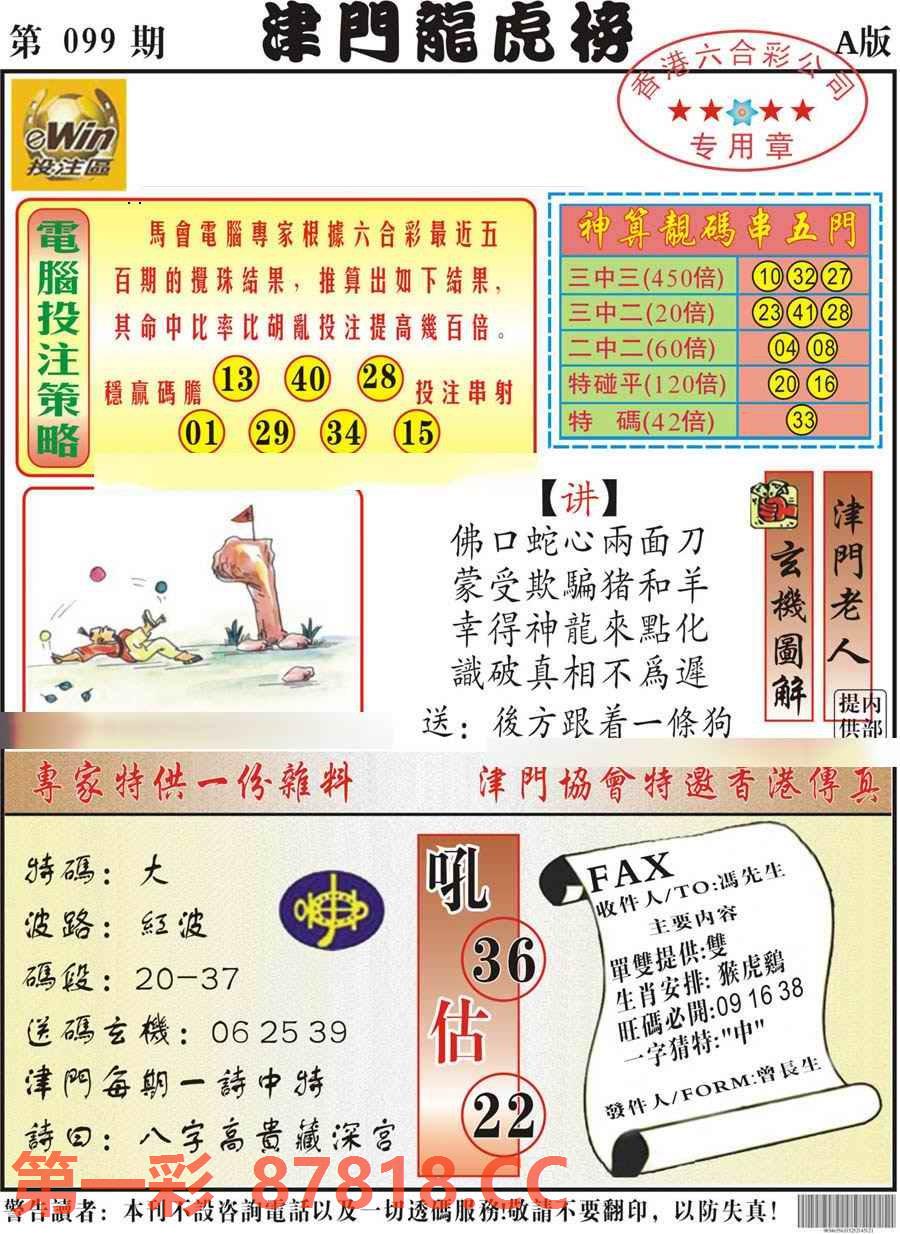 第 099 期
津門龍虎榜
A版
香港六合彩公司
专用章
eWin
投注區
電腦投注策略
馬會電腦專家根據六合彩最近五
百期的攪珠結果，推算出如下結果，
其命中比率比胡亂投注提高幾百倍。
穩贏碼膽 13 40 28 投注串射
01 29 34 15
神算靚碼串五門
三中三(450倍) 10 32 27
三中二(20倍) 23 41 28
二中二(60倍) 04 08
特碰平(120倍) 20 16
特 碼(42倍) 33
【讲】
佛口蛇心兩面刀
蒙受欺騙猪和羊
幸得神龍來點化
識破真相不爲遲
送：後方跟着一條狗
玄機圖解
津門老人
内部
提供
專家特供一份雜料
津門協會特邀香港傳真
特碼：大
波路：紅波
碼段：20-37
送碼玄機：06 25 39
津門每期一詩中特
詩曰：八字高貴藏深宫
吼
36
估
22
FAX
收件人/TO:馮先生
主要内容
單雙提供:雙
生肖安排:猴虎鷄
旺碼必開:09 16 38
一字猜特:"中"
發件人/FORM:曾長生
第一彩 87818.CC
警告讀者：本刊不設咨詢電話以及一切透碼服務!敬請不要翻印，以防失真!